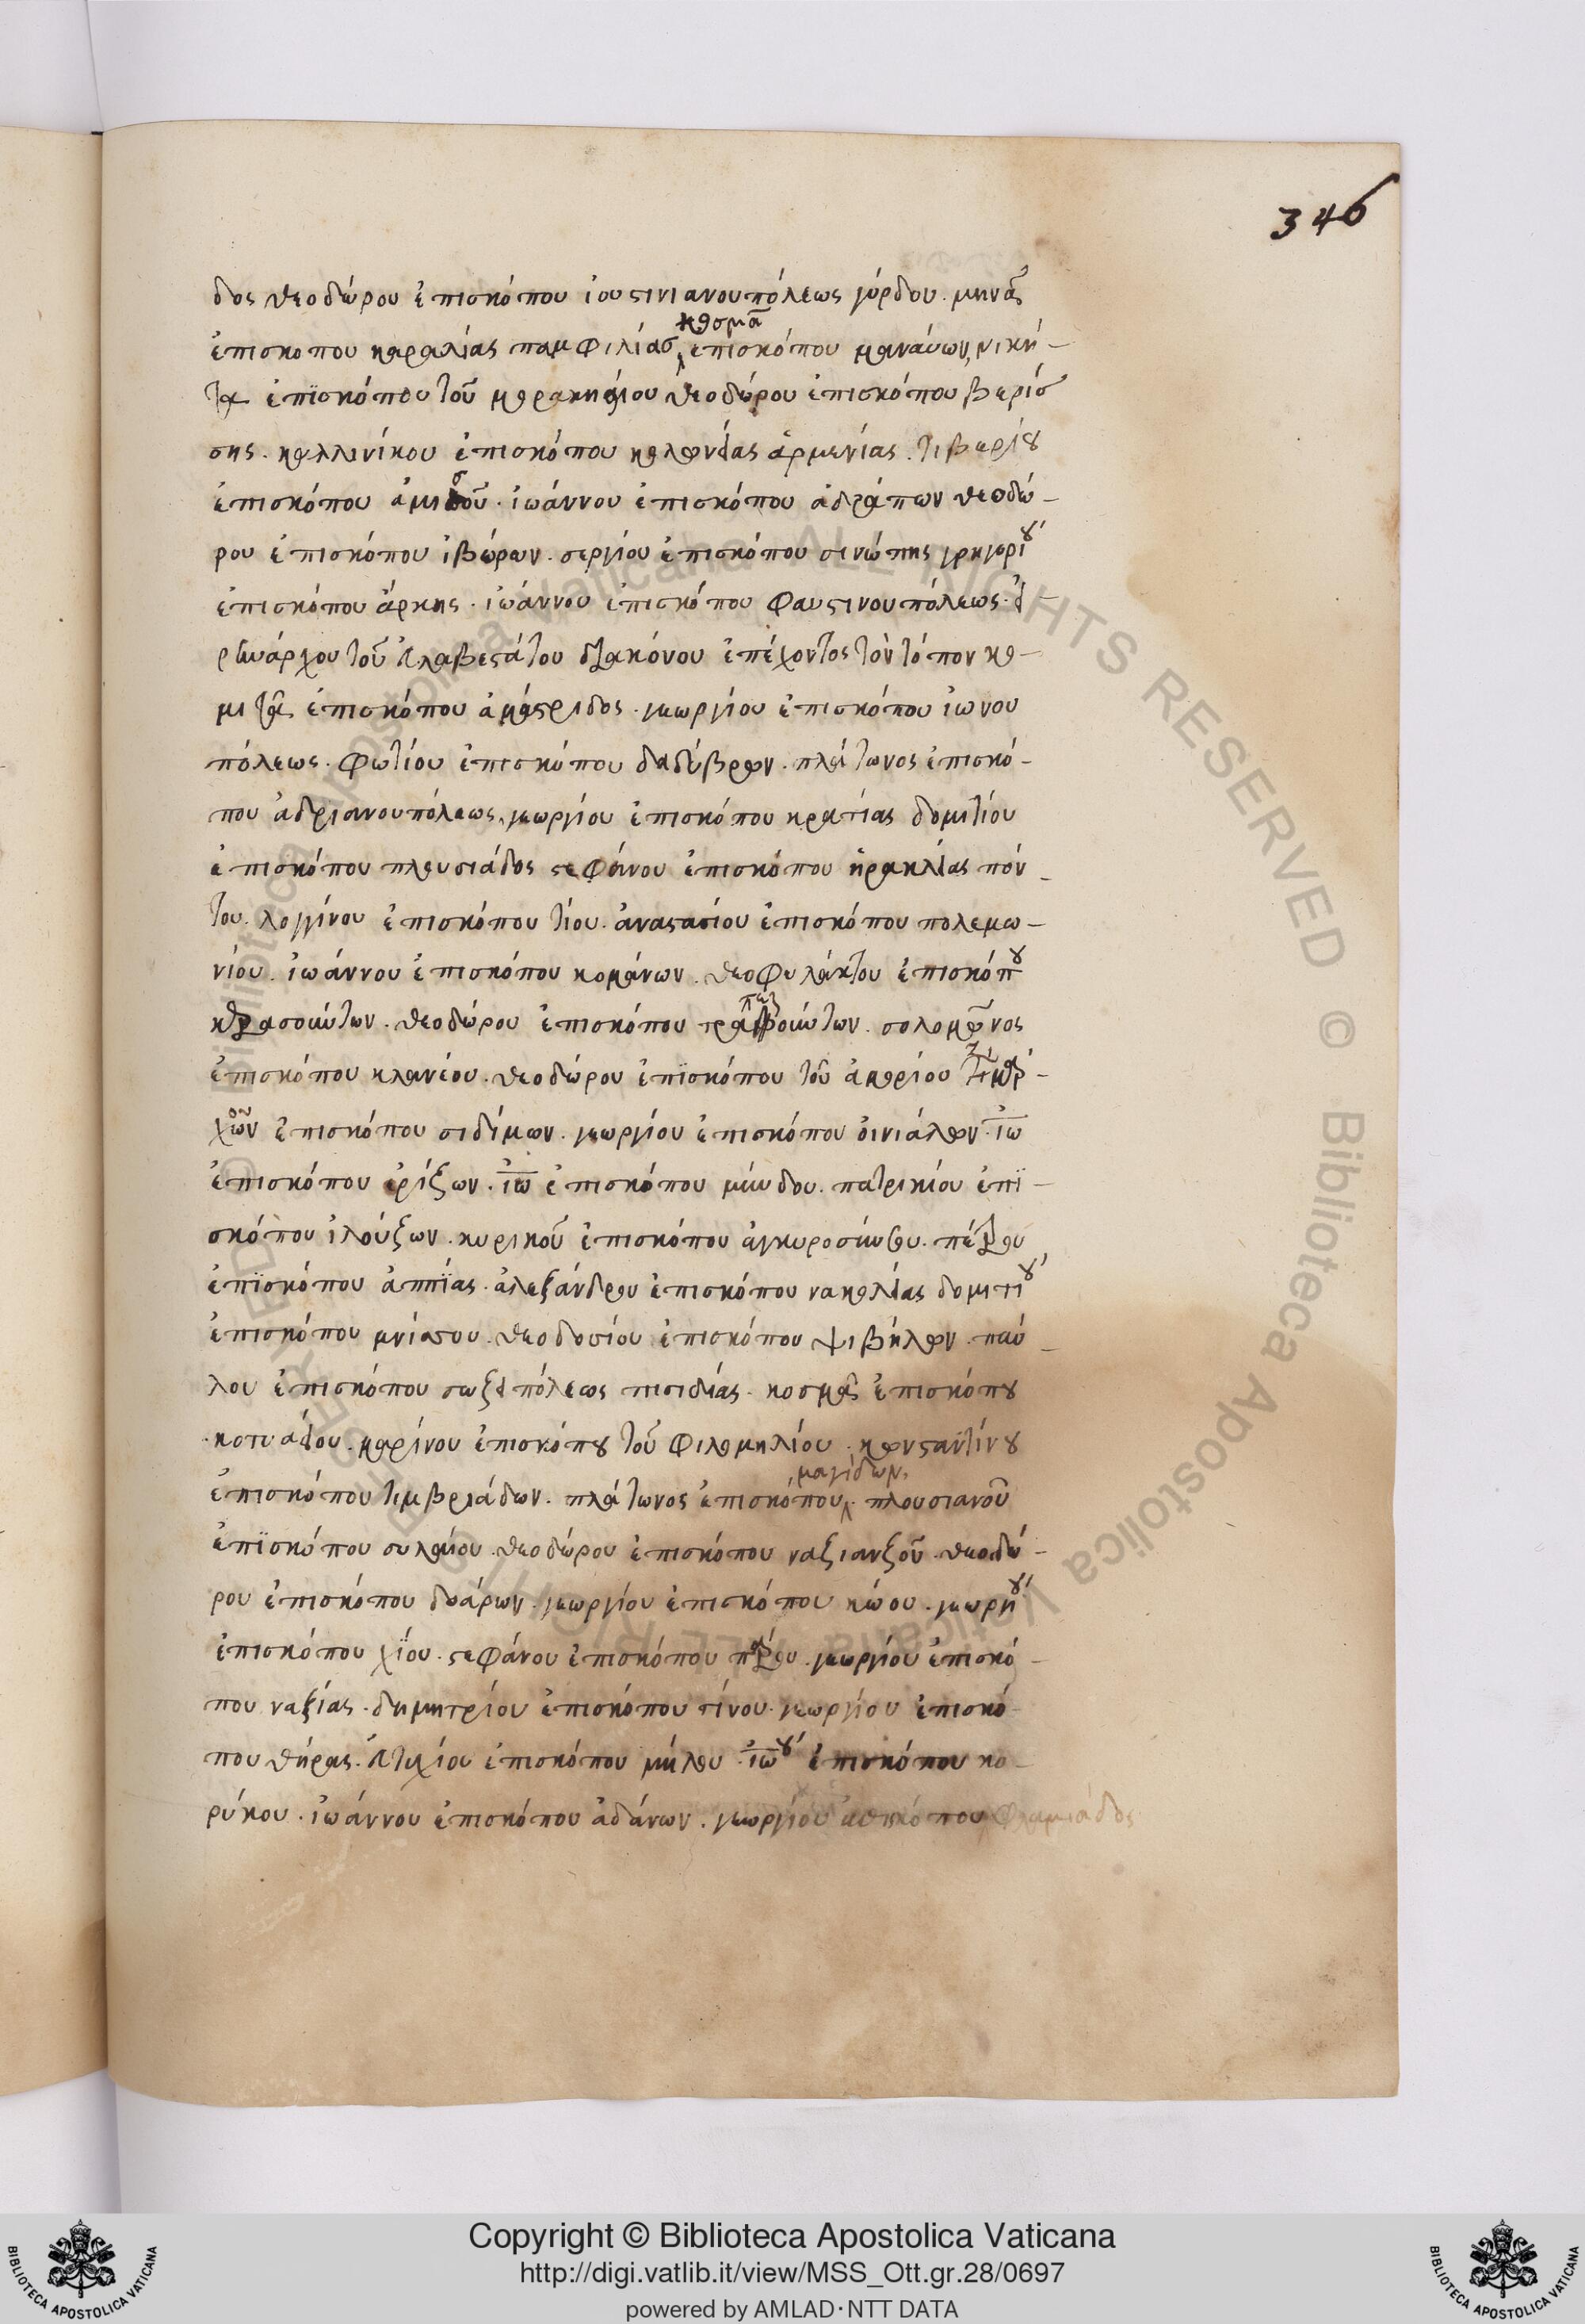 346
δος θεοδώρου ἐπισκόπου ἰουστινιανουπόλεως γόρδου. μηνᾶ
κοσμᾶ
ἐπισκοπου καραλίας παμφιλίασ ἐπισκόπου μαναύων, νική-
τα ἐπϊσκόπου τοῦ θεοδώρου ἐπισκόπου βερίσ
σης. καλλινίκου ἐπισκόπου κολωνείας ἀρμενίας. τιβερίου
ἐπισκόπου ἀμισοῦ. ἰωάννου ἐπισκόπου ἀδράπων θεοδώ-
ρου ἐπισκόπου ἰβώρων. σεργίου ἐπισκόπου σινώπης γρηγορίου
ἐπισκόπου ἄρκης. ἰωάννου ἐπισκόπου φαυστινουπόλεως. εἰ-
ρηνάρχου τοῦ εὐλαβεστάτου διακόνου ἐπέχοντος τὸν τόπον κο-
μιτᾶ ἐπισκόπου ἀμάστριδος. γεωργίου ἐπισκόπου ἰωνου
πόλεως. φωτίου ἐπισκόπου δαδύβρων. πλάτωνος ἐπισκό-
που ἀδριανουπόλεως, γεωργίου ἐπισκόπου κρατίας δομιτίου
ἐπισκόπου πλουσιάδος στεφάνου ἐπισκόπου ἡρακλείας πόν-
του. λογγίνου ἐπισκόπου τίου. ἀναστασίου ἐπισκόπου πολεμω-
νίου. ἰωάννου ἐπισκόπου κομάνων. θεοφυλάκτου ἐπισκόπου
κερασούντων. θεοδώρου ἐπισκόπου τραπεζούντων. σολομῶνος
ἐπισκόπου κλανέου. θεοδώρου ἐπϊσκόπου τοῦ
ἐπισκόπου σιδύμων. γεωργίου ἐπισκόπου οἰνιάνδων. ἰω
ἐπισκόπου ἐρίξων. ἰω ἐπισκόπου μύνδου. πατρικίου ἐπϊ-
σκόπου ἰλούζων. κυρικοῦ ἐπισκόπου ἀγκυροσύνου. πέτρου
ἐπϊσκόπου ἀππΐας. ἀλεξάνδρου ἐπισκόπου νακολείας δομιτίου
ἐπισκόπου θεοδοσίου ἐπισκόπου ψιβήλων. παύ-
λου ἐπισκόπου σωζοπόλεως πισιδίας. κοσμᾶ ἐπισκόπου
κοτυαείου. μαρίνου ἐπισκόπου τοῦ φιλομηλίου. κωνσταντίνου
μαγίδων,
ἐπισκόπου τιμβριάδων. πλάτωνος ἐπισκόπου πλουσιανοῦ
ἐπϊσκόπου συλαίου. θεοδώρου ἐπισκόπου ναζιανζοῦ. θεοδώ-
ρου ἐπισκόπου δοάρων. γεωργίου ἐπισκόπου κώου. γεωργίου
ἐπισκόπου χΐου. στεφάνου ἐπισκόπου πάρου. γεωργίου ἐπισκό-
που ναξίας. δημητρίου ἐπισκόπου τίνου. γεωργίου ἐπισκό-
που θήρας. εὐτυχίου ἐπισκόπου μήλου. ἰωου ἐπισκόπου κο-
ρύκου. ἰωάννου ἐπισκόπου ἀδάνων. γεωργίου
Copyright © Biblioteca Apostolica Vaticana
http://digi.vatlib.it/view/MSS_Ott.gr.28/0697
powered by AMLAD·NTT DATA
BIBLIOTECA APOSTOLICA VATICANA
BIBLIOTECA APOSTOLICA VATICANA